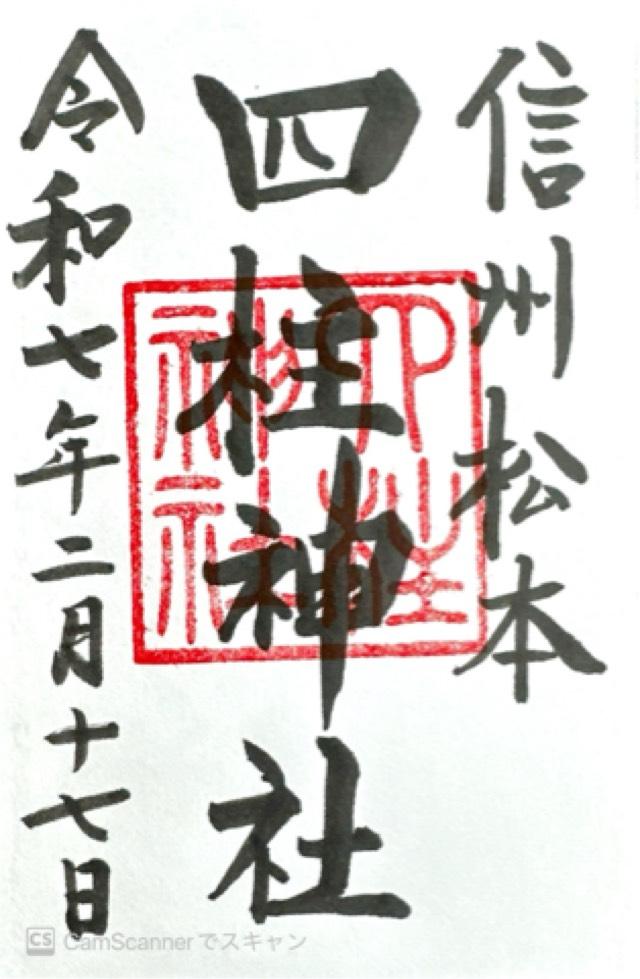 信州松本
四柱神社
四柱神社
令和七年二月十七日
CS CamScannerでスキャン